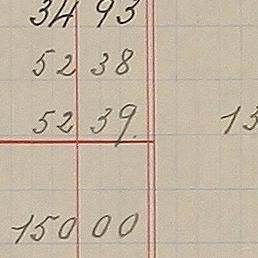 34 93
52 38
52 39. 13
150 00